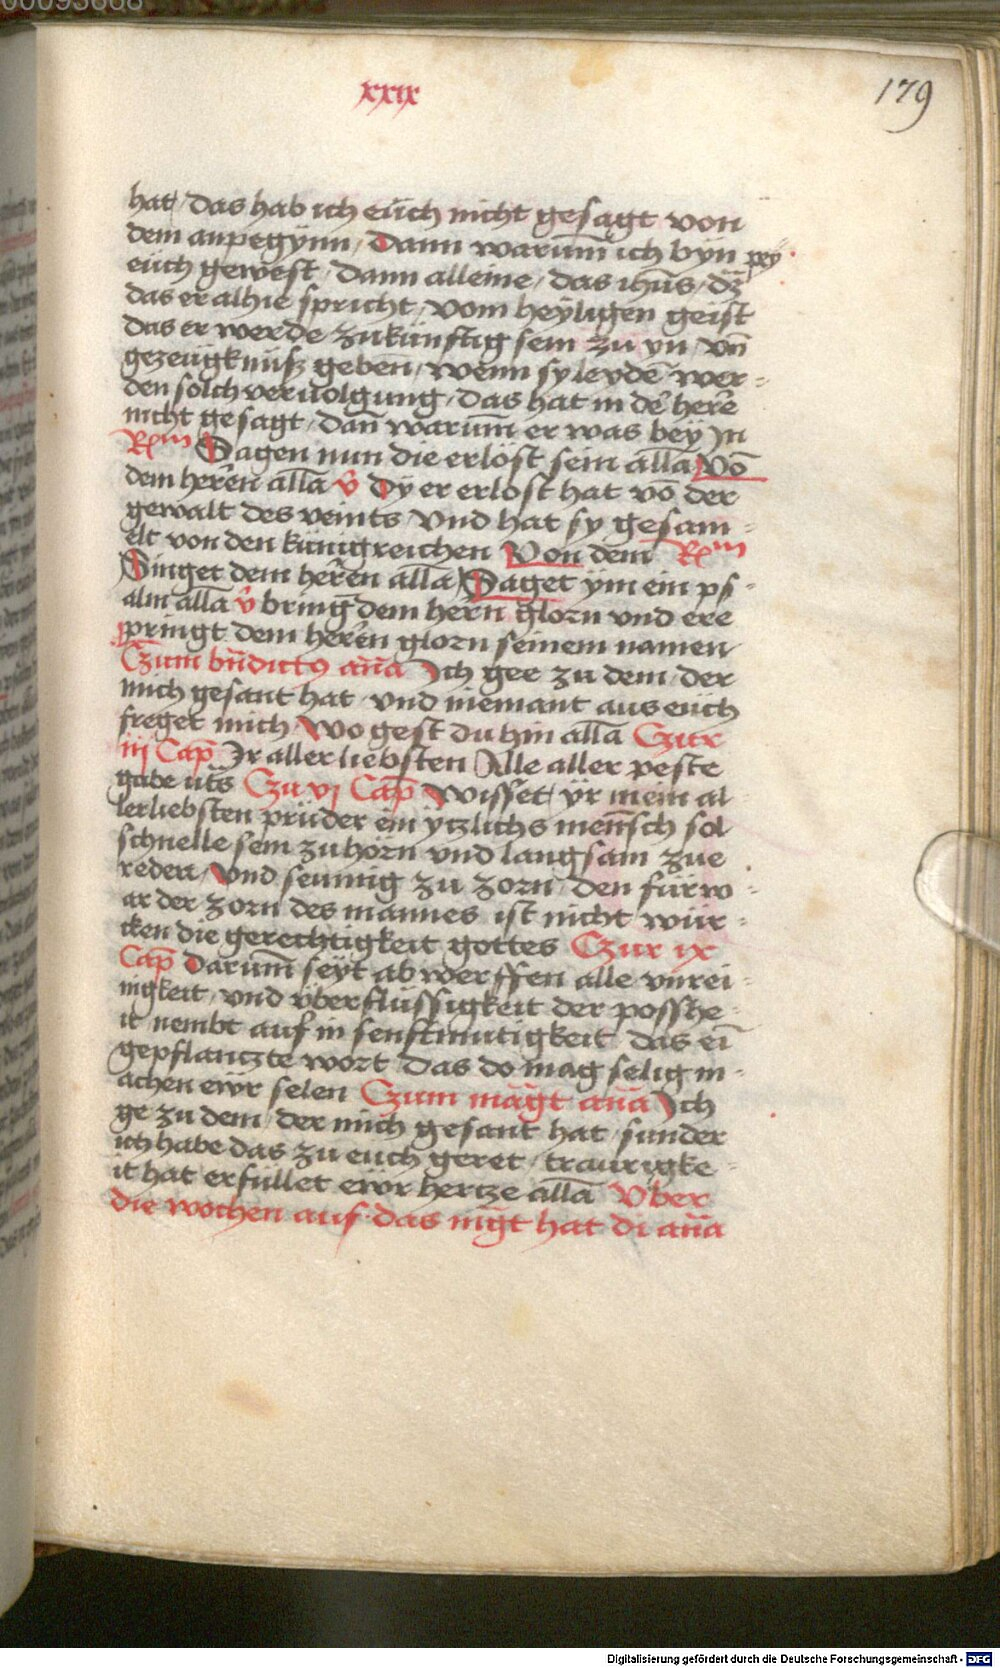 00093668
xxix
179
hat / Das hab ich euch nicht gesagt von
dem anpegynn / Dann warum̄ ich byn pey
euch gewest / dann alleine / das ihūs / dz̄
das er alhie spricht / vom heyligen geist
das er werde zukünftig sein zu yn / vn̄
gezeugknüß geben̄ / wenn sy leyden̄ wer-
den solch veruolgung / das hat in de' here
nicht gesagt / dan̄ warum̄ er was bey Jn
Rm Sagen nun die erlöst sein alla Vō
dem heren alla v̄ Dy er erlost hat vō der
gewalt des veints / Vnd hat sy gesam-
elt von den künigreichen Von dem Rm
Singet dem heren alla Saget ym ein ps-
alm alla v̄ bringt dem hern glorn vnd ere
pringt dem heren glorn seinem namen
Czum bn̄dict9 an̄a Ich gee zu dem / der
mich gesant hat / vnd niemant aus euch
freget mich / wo gest du hin alla Czur
iij Cap̄ Ir aller liebsten Alle aller peste
gabe ut̄s Czu vj Cap̄ Wisset / yr mein al
lerliebsten prüder ein ytzlichs mensch sol
schnelle sein zu hörn vnd langsam zue
reden / Vnd seumig zu zorn / den fürw-
ar der zorn des mannes ist nicht wür-
cken die gerechtigkeit gottes Czur ix
Cap̄ Darum̄ seyt abwerffen alle vnrei-
nigkeit / vnd überflüssigkeit der posshe-
it nembt auf in senftmutigkeit das eī
gepflanczte wort das do mag selig m-
achen ewr selen Czum magt an̄a Ich
ge zu dem / der mich gesant hat / sunder
ich habe das zu euch geret / traurigke-
it hat erfüllet ewr hertze alla Vber
die wochen auf das mgt hat di an̄a
Digitalisierung gefördert durch die Deutsche Forschungsgemeinschaft - DFG